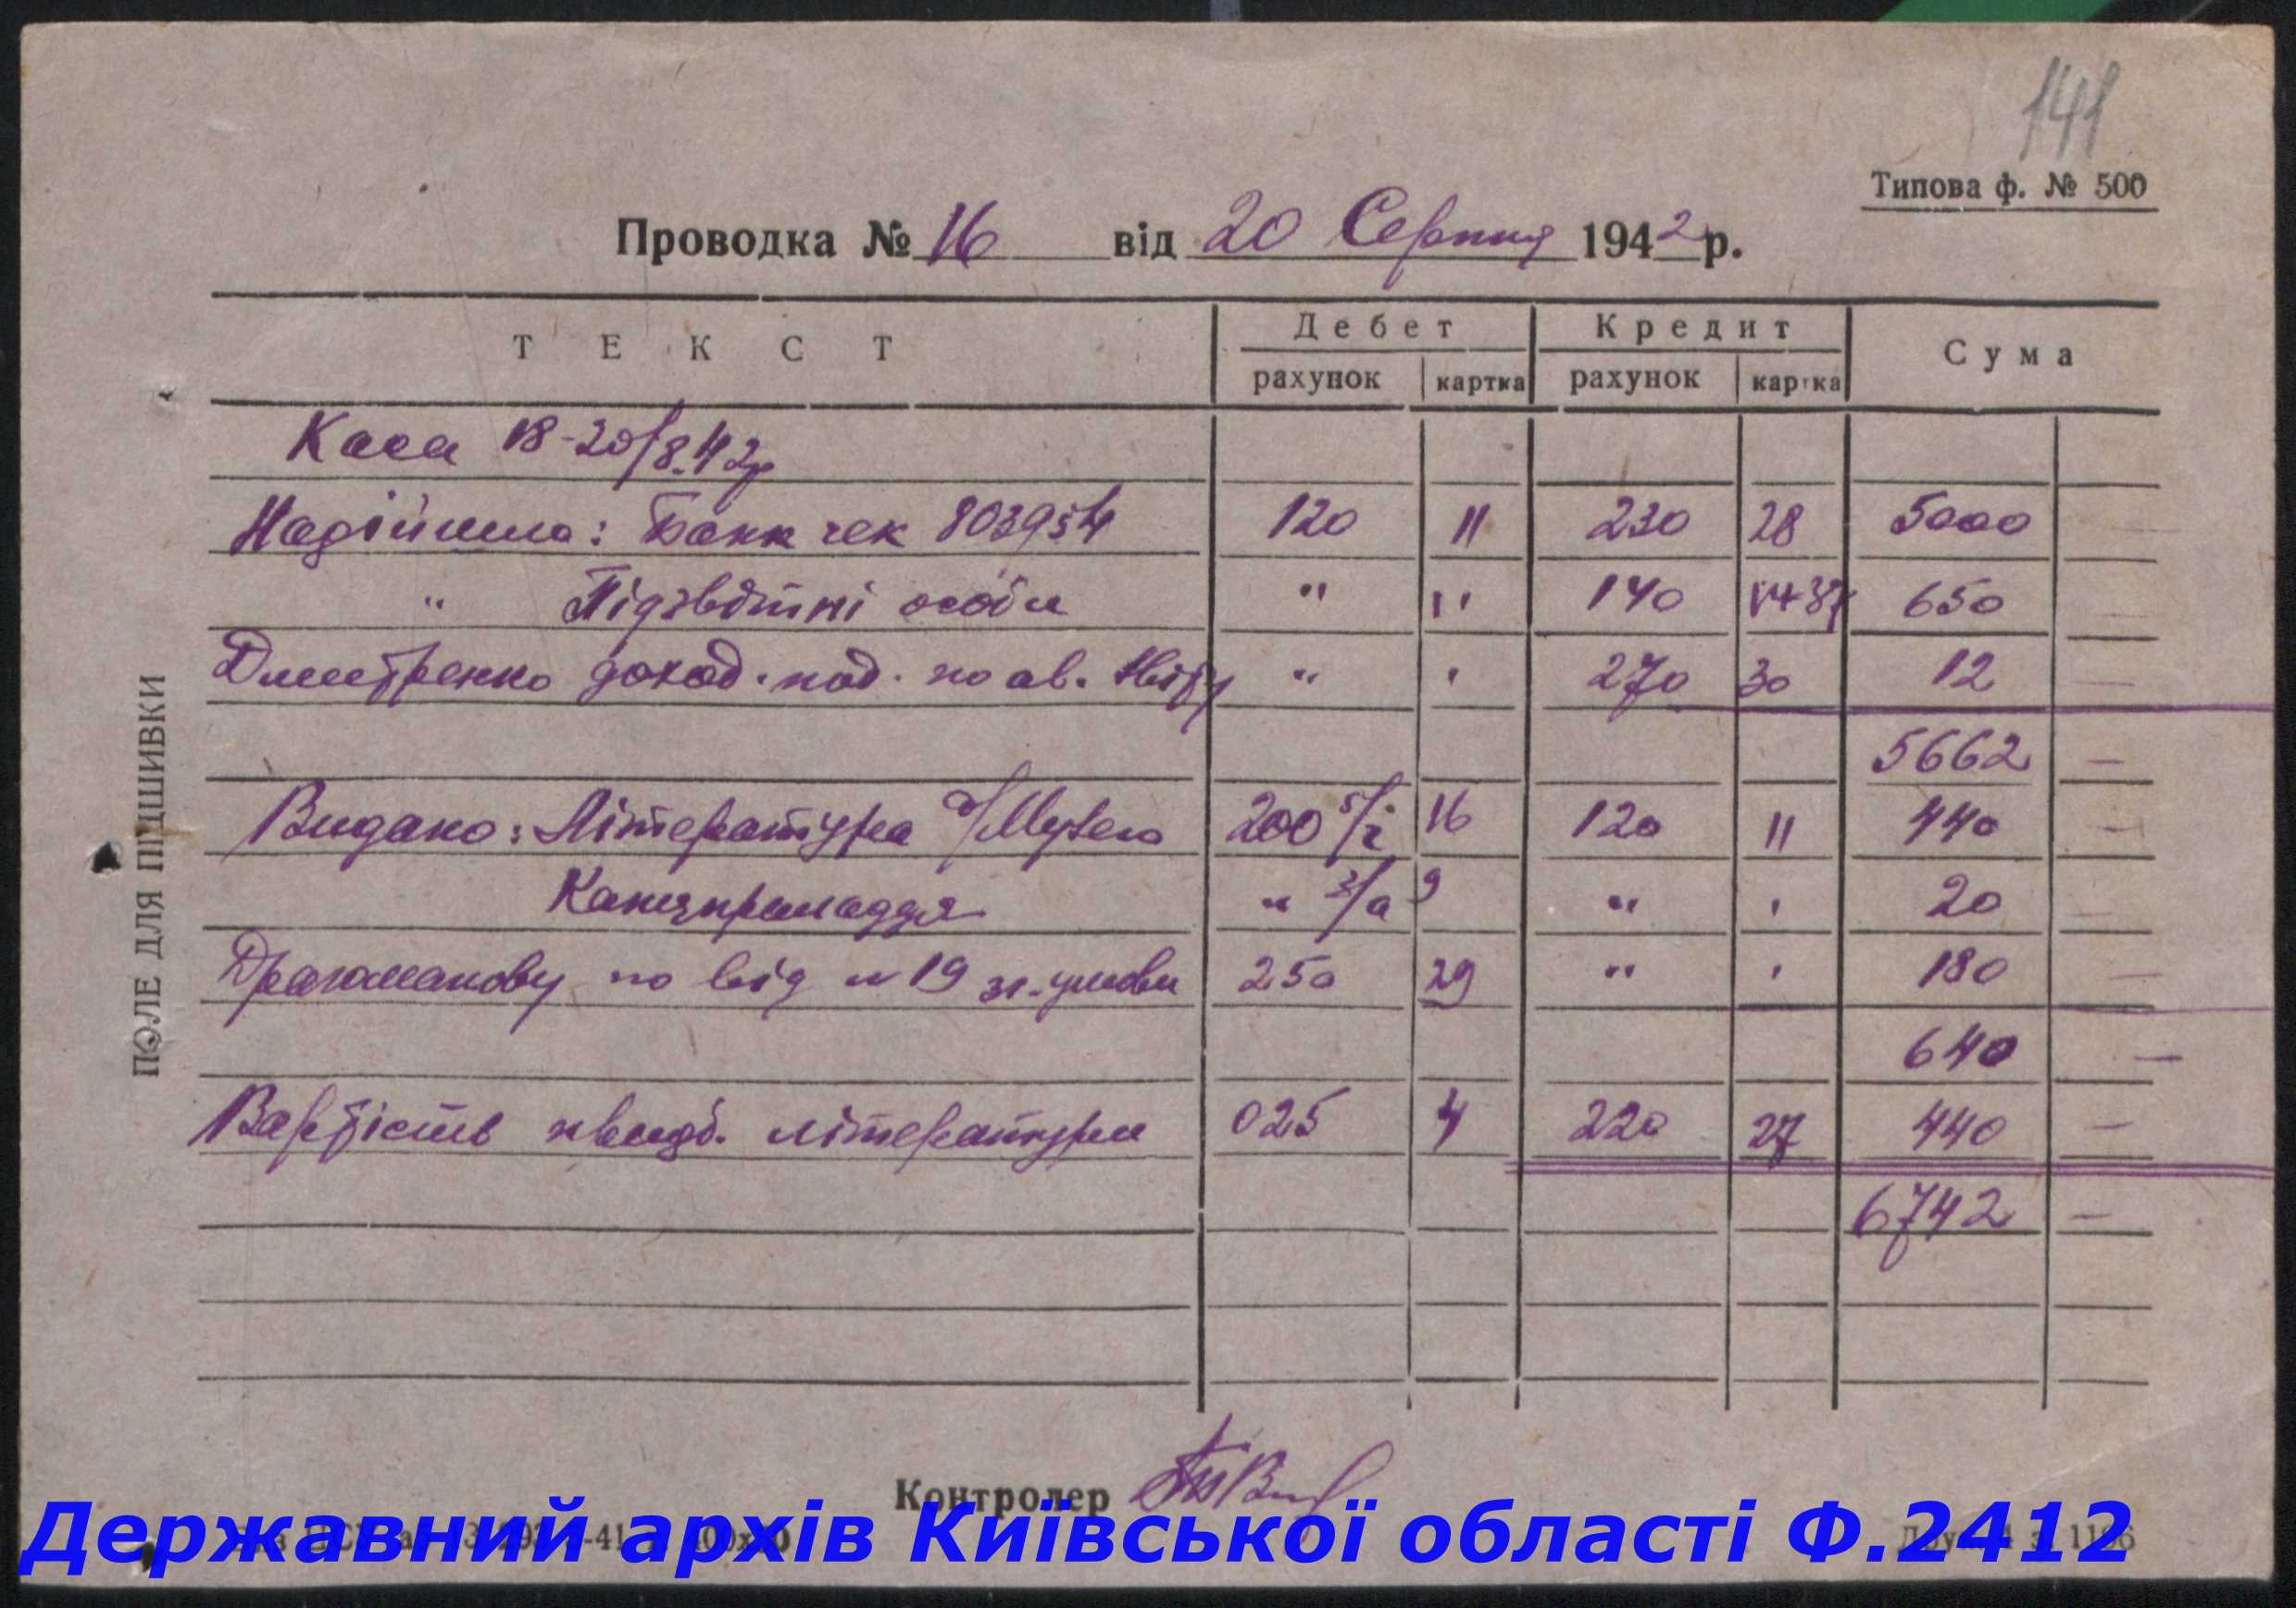 141
Типова ф. № 500
Проводка № 16 від 20 Серпня 1942 р.
ТЕКСТ Дебет Кредит Сума
рахунок картка рахунок картка
Каса 18-20/8.42р
Надійшло: Банк чек 803954 120 11 230 28 5000
" Підзвітні особи " " 140 650
Дмитренко доход. под. по ав. " " 270 30 12
5662 —
Видано: Література д/Музею 200 5/і 16 120 11 440 —
Канцприладдя " 3/а 9 " " 20 —
Драгоманову по від 19 зг. умови 250 29 " " 180 —
640 —
Вартість придб. літератури 025 4 220 27 440 —
6742 —
ПОЛЕ ДЛЯ ПІДШИВКИ
Контролер
Державний архів Київської області Ф.2412